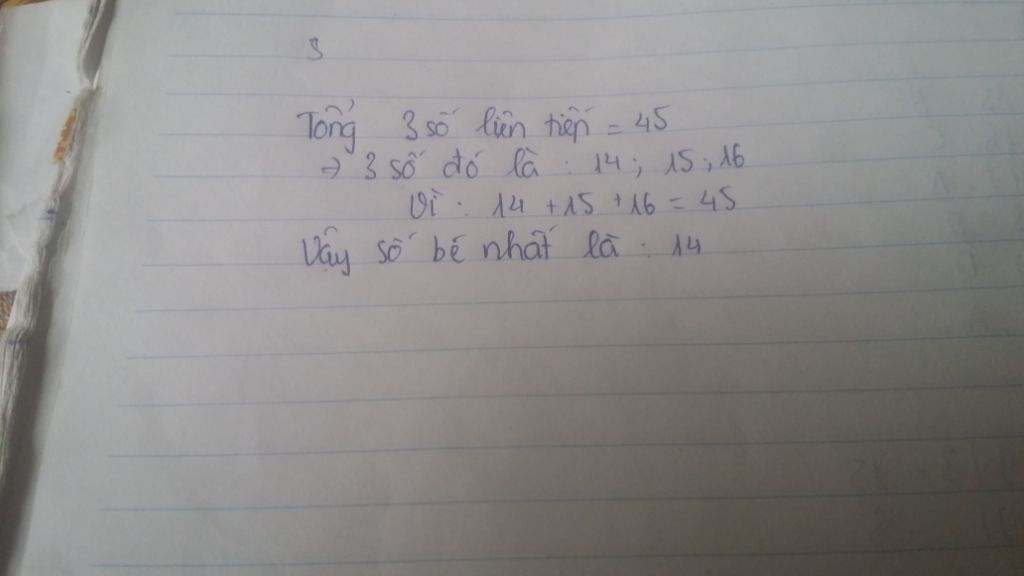 3
Tổng 3 số liên tiếp = 45
=> 3 số đó là : 14 ; 15 ; 16
Vì : 14 + 15 + 16 = 45
Vậy số bé nhất là : 14